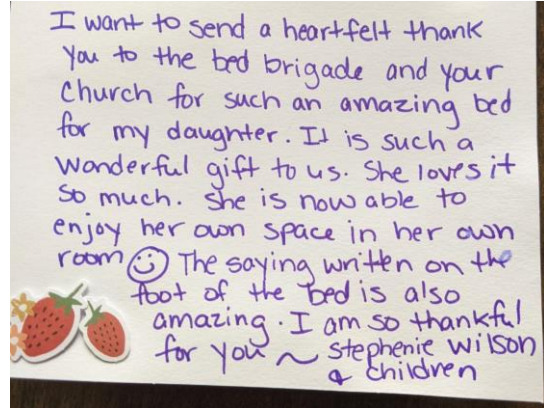 I want to send a heartfelt thank
you to the bed brigade and your
Church for such an amazing bed
for my daughter. It is such a
wonderful gift to us. She loves it
so much. She is now able to
enjoy her own space in her own
room ☺ The saying written on the
foot of the bed is also
amazing. I am so thankful
for you ~ Stephenie Wilson
& children